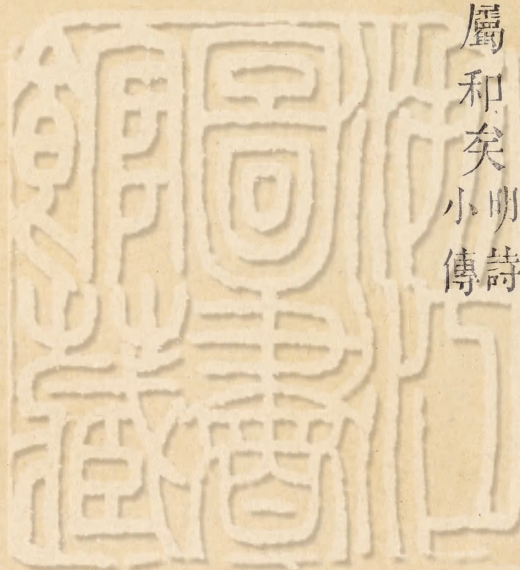 屬和矣 明詩小傳
浙江
圖書
館藏